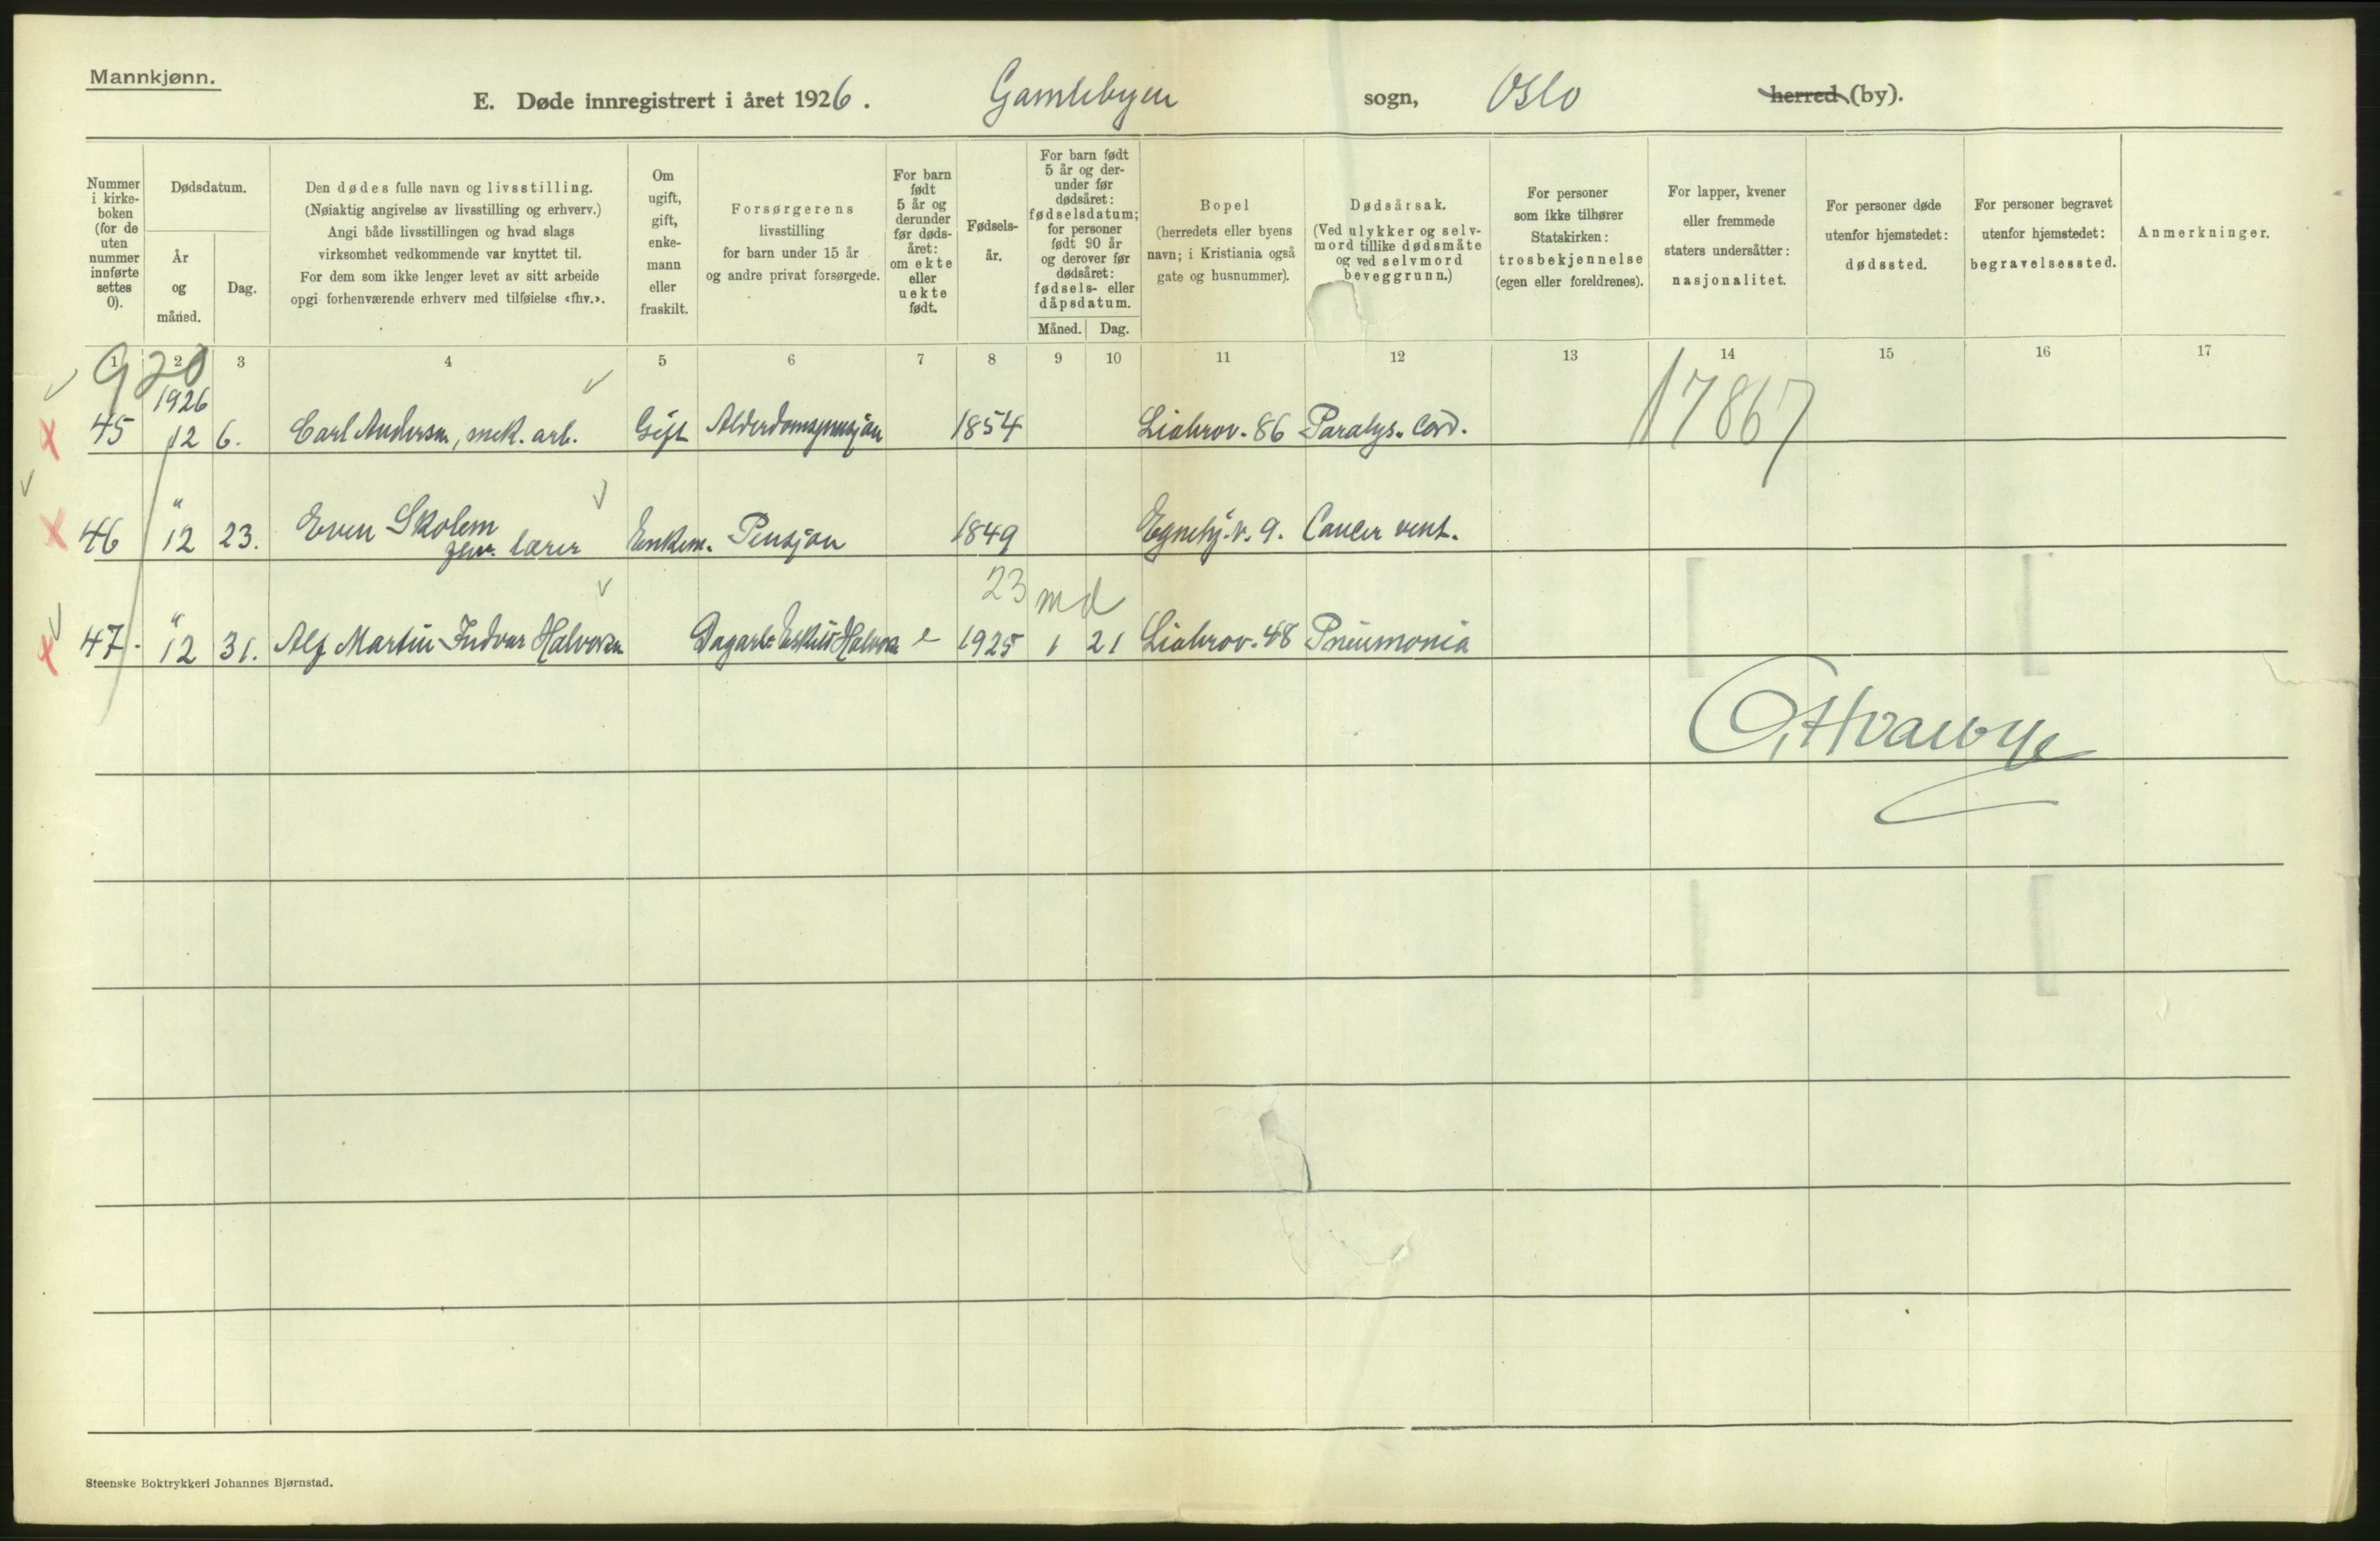 Mannkjønn.
E. Døde innregistrert i året 1926. Gamlebyen sogn, Oslo herred (by).
Nummer i kirke-boken (for de uten nummer innførte settes 0).
Dødsdatum.
År og måned.
Dag.
Den dødes fulle navn og livsstilling.
(Nøiaktig angivelse av livsstilling og erhverv.)
Angi både livsstillingen og hvad slags
virksomhet vedkommende var knyttet til.
For dem som ikke lenger levet av sitt arbeide
opgi forhenværende erhverv med tilføielse «fhv.».
Om ugift, gift, enke-mann eller fraskilt.
Forsørgerens
livsstilling
for barn under 15 år
og andre privat forsørgede.
For barn født 5 år og derunder før døds-året: om ekte eller uekte født.
Fødsels-år.
For barn født 5 år og der-under før dødsåret: fødselsdatum; for personer født 90 år og derover før dødsåret: fødsels- eller dåpsdatum.
Måned. Dag.
Bopel
(herredets eller byens
navn; i Kristiania også
gate og husnummer).
Dødsårsak.
(Ved ulykker og selv-
mord tillike dødsmåte
og ved selvmord
beveggrunn.)
For personer
som ikke tilhører
Statskirken:
trosbekjennelse
(egen eller foreldrenes).
For lapper, kvener
eller fremmede
staters undersåtter:
nasjonalitet.
For personer døde
utenfor hjemstedet:
dødssted.
For personer begravet
utenfor hjemstedet:
begravelsessted.
Anmerkninger.
1 2 3 4 5 6 7 8 9 10 11 12 13 14 15 16 17
920
1926
45 12 6. Carl Andersen, mek. arb. Gift Alderdomspensjon 1854 Liabrov. 86 Paralys. Cord. 17867
"
46 12 23. Even Skolem fhv. lærer Enkem. Pensjon 1849 Egnehj.v. 9. Cancer vent.
23 md
"
47. 12 31. Alf Martin Indvar Halvorsen Dagarb. Eskild Halvorsen e 1925 1 21 Liabrov. 48 Pneumonia
Steenske Boktrykkeri Johannes Bjørnstad.